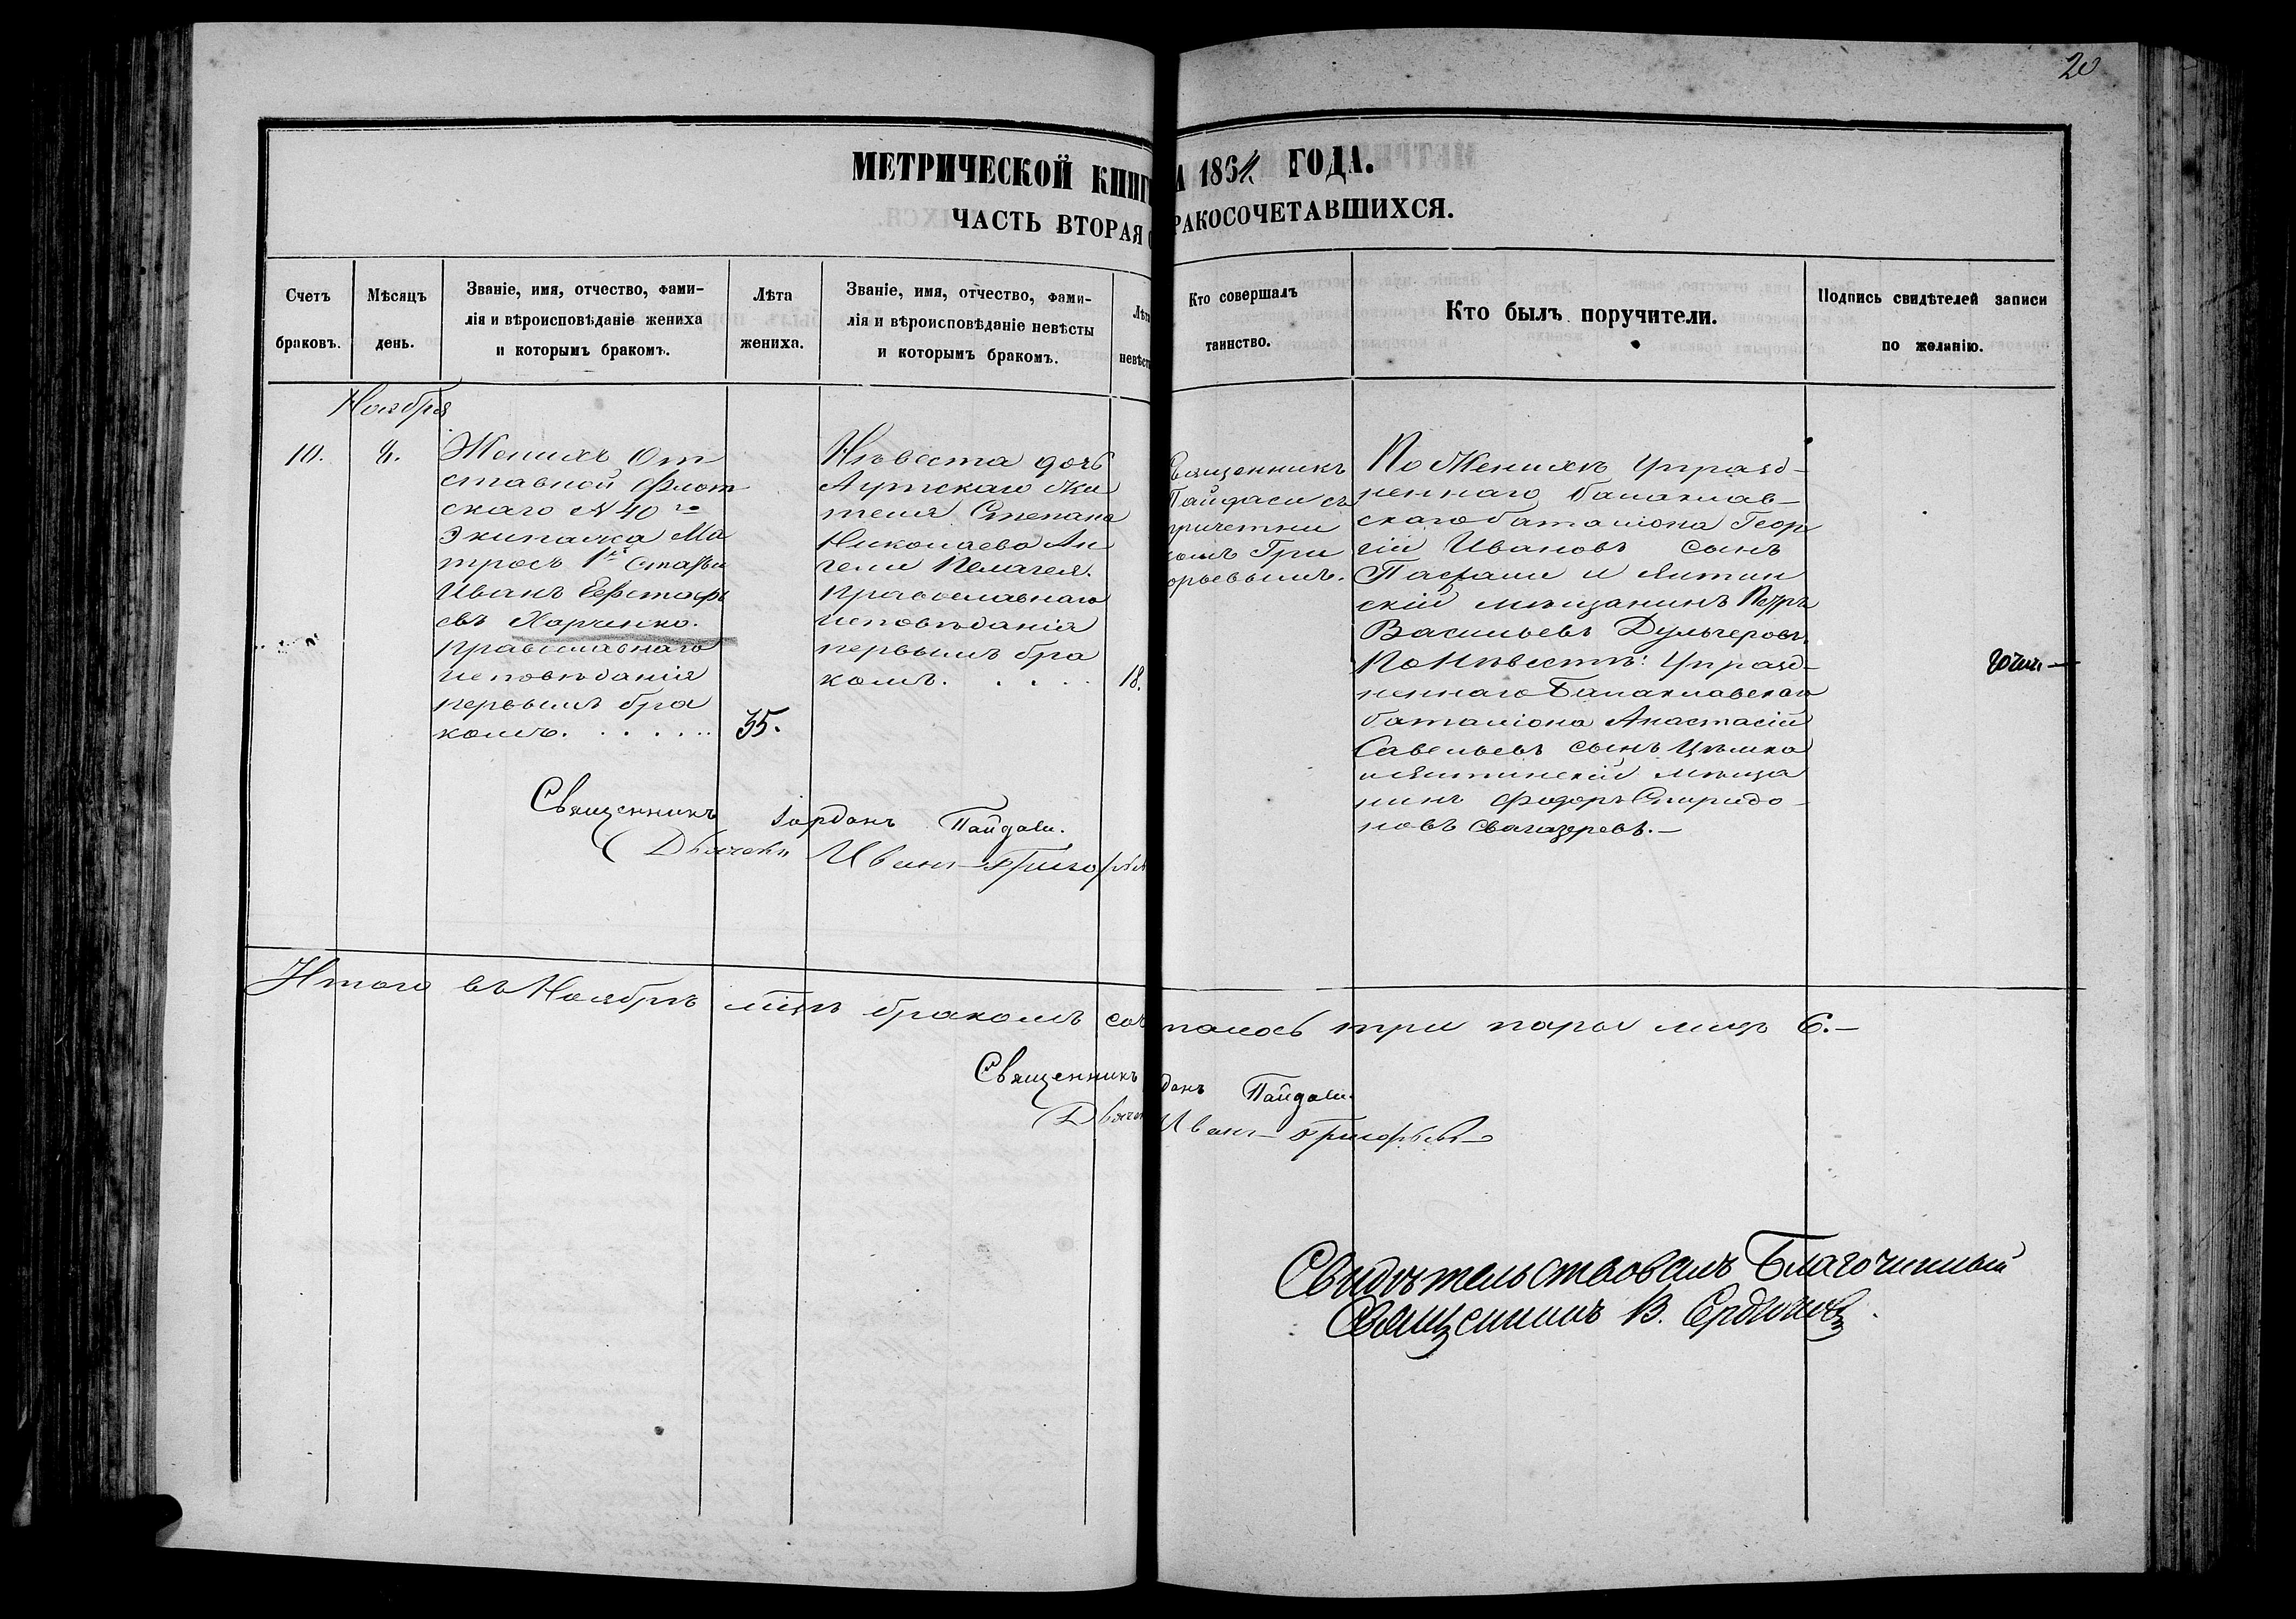 20
МЕТРИЧЕСКОЙ КНИГ
А 1864 ГОДА.
ЧАСТЬ ВТОРАЯ
РАКОСОЧЕТАВШИХСЯ.
Счетъ браковъ.
Мѣсяцъ день.
Званіе, имя, отчество, фами-
лія и вѣроисповѣданіе жениха
и которымъ бракомъ.
Лѣта жениха.
Званіе, имя, отчество, фами-
лія и вѣроисповѣданіе невѣсты
и которымъ бракомъ.
Лѣт
невѣст
Кто совершалъ
таинство.
Кто былъ поручители.
Подпись свидѣтелей записи
по желанію.
Ноября
10.
8.
Женихъ От
ставной Флот
скаго N 40го
Экипажа Ма
тросъ 1й статьи
Иванъ Евстафь
евъ Харченко.
православнаго
исповѣданія
первымъ бра
комъ.
35.
Невѣста дочь
Аутскаго жи
теля Степана
Николаева Ан
гели Пелагея.
православнаго
исповѣданія
первымъ бра
комъ.
18.
Священникъ
Пайдаси съ
причетни
комъ Гри
орьевымъ.
По Женихѣ Упразд-
неннаго Балаклав-
скаго баталіона Геор
гій Ивановъ сынъ
и Ялтин
скій мѣщанинъ Петръ
Васильевъ Дульгеровъ
По Невѣстѣ: Упразд-
неннаго Балаклавскаго
баталіона Анастасій
Савельевъ сынъ
и Ялтинскій мѣща
нинъ Федоръ Спиридо-
новъ
Священникъ Іорданъ Пайдаси.
Дьячекъ Иванъ Григорьев
Итого въ Ноябрѣ мцѣ бракомъ соч
талось три пары лицъ 6.—
Священникъ
данъ Пайдаси.
Дьячек
Иванъ Григорьевъ
Свидѣтельствовалъ Благочинный
Священникъ В.